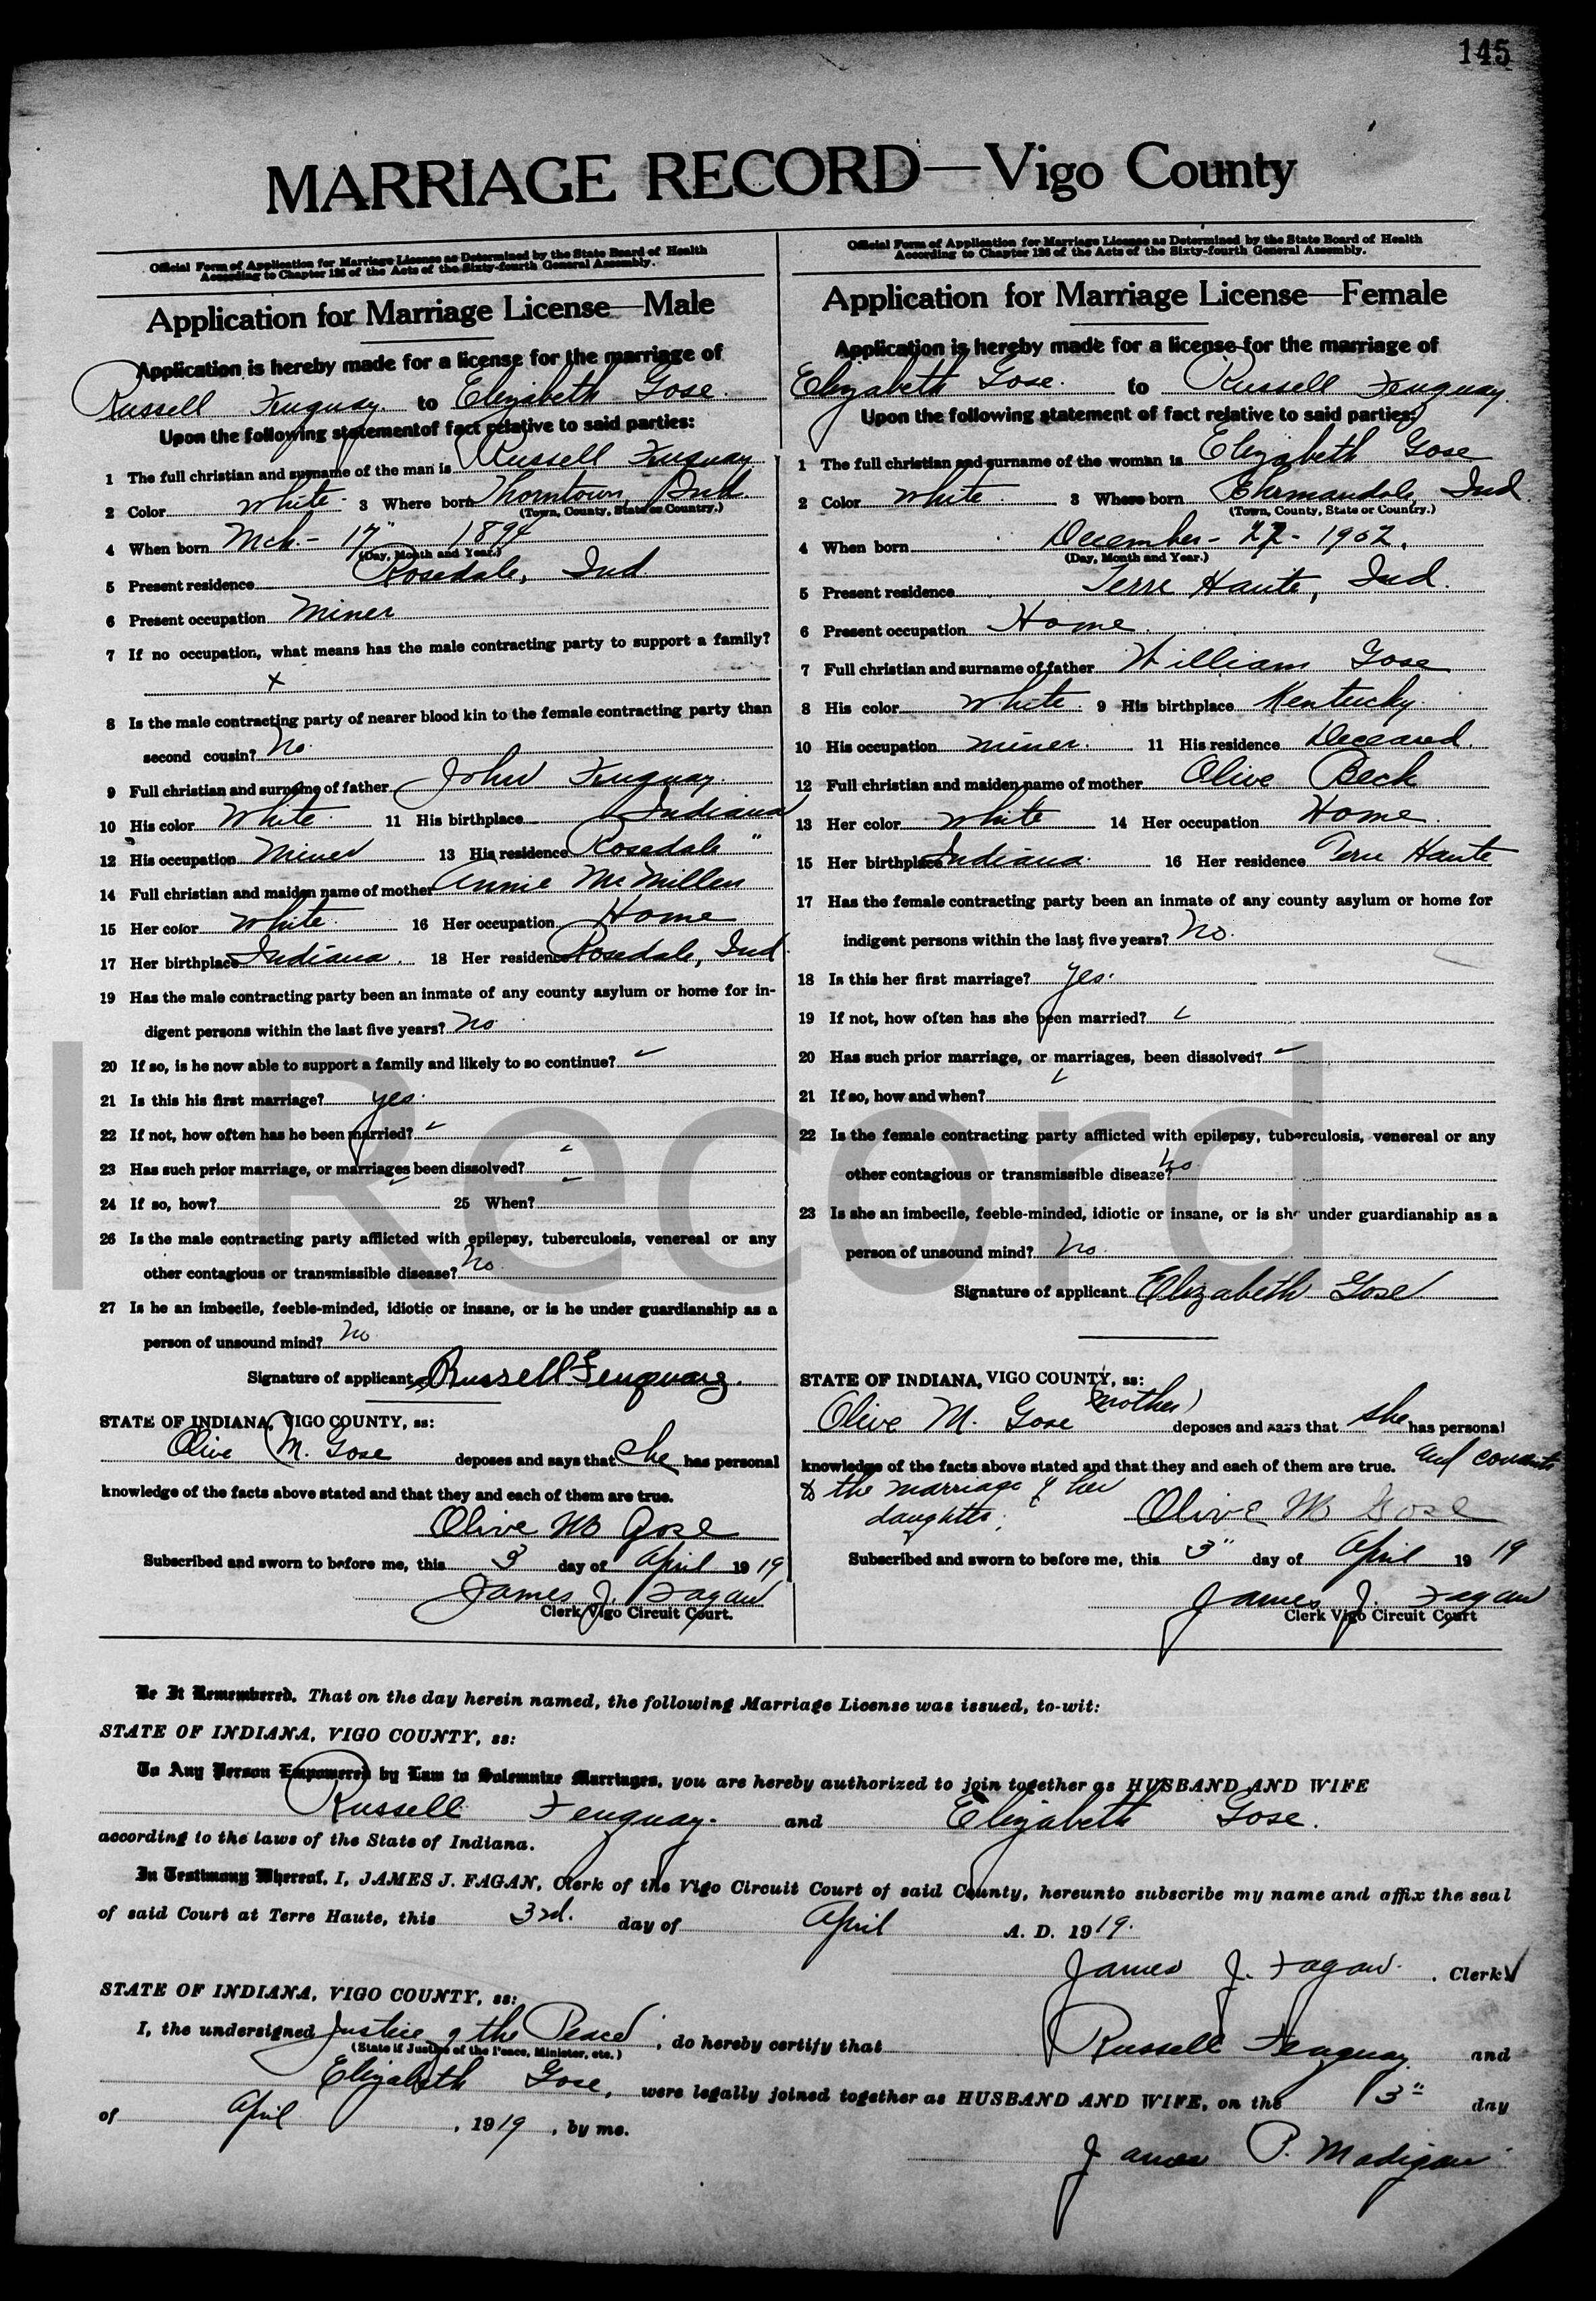 145
MARRIAGE RECORD—Vigo County
Official Form of Application for Marriage License as Determined by the State Board of Health
According to Chapter 126 of the Acts of the Sixty-fourth General Assembly.
Application for Marriage License—Male
Application is hereby made for a license for the marriage of
Russell Fenguay. to Elizabeth Gose.
Upon the following statement of fact relative to said parties:
1 The full christian and surname of the man is Russell Fenguay
2 Color white. 3 Where born Thorntown, Ind.
(Town, County, State or Country.)
4 When born Mch.- 17" 1894
(Day, Month and Year.)
5 Present residence Rosedale, Ind
6 Present occupation Miner
7 If no occupation, what means has the male contracting party to support a family?
x
8 Is the male contracting party of nearer blood kin to the female contracting party than
second cousin? No.
9 Full christian and surname of father John Fenguay.
10 His color White. 11 His birthplace Indiana
12 His occupation Miner 13 His residence Rosedale "
14 Full christian and maiden name of mother Annie McMillen
15 Her color White. 16 Her occupation Home
17 Her birthplace Indiana. 18 Her residence Rosedale, Ind
19 Has the male contracting party been an inmate of any county asylum or home for in-
digent persons within the last five years? No.
20 If so, is he now able to support a family and likely to so continue? ✓
21 Is this his first marriage? yes.
22 If not, how often has he been married? ✓
23 Has such prior marriage, or marriages been dissolved? ✓
24 If so, how? ✓ 25 When? ✓
26 Is the male contracting party afflicted with epilepsy, tuberculosis, venereal or any
other contagious or transmissible disease? No.
27 Is he an imbecile, feeble-minded, idiotic or insane, or is he under guardianship as a
person of unsound mind? No.
Signature of applicant Russell Fenquay.
STATE OF INDIANA, VIGO COUNTY, ss:
Olive M. Gose deposes and says that She has personal
knowledge of the facts above stated and that they and each of them are true.
Olive M Gose
Subscribed and sworn to before me, this 3 day of April 1919
James J. Fagan
Clerk Vigo Circuit Court.
Official Form of Application for Marriage License as Determined by the State Board of Health
According to Chapter 126 of the Acts of the Sixty-fourth General Assembly.
Application for Marriage License—Female
Application is hereby made for a license for the marriage of
Elizabeth Gose. to Russell Fenguay.
Upon the following statement of fact relative to said parties:
1 The full christian and surname of the woman is Elizabeth Gose
2 Color white 3 Where born Ehrmandale, Ind.
(Town, County, State or Country.)
4 When born December - 27 - 1902.
(Day, Month and Year.)
5 Present residence Terre Haute, Ind.
6 Present occupation Home.
7 Full christian and surname of father William Gose
8 His color white. 9 His birthplace Kentucky.
10 His occupation miner. 11 His residence Deceased.
12 Full christian and maiden name of mother Olive Beck
13 Her color white 14 Her occupation Home.
15 Her birthplace Indiana. 16 Her residence Terre Haute
17 Has the female contracting party been an inmate of any county asylum or home for
indigent persons within the last five years? No.
18 Is this her first marriage? yes.
19 If not, how often has she been married? ✓
20 Has such prior marriage, or marriages, been dissolved? ✓
21 If so, how and when? ✓
22 Is the female contracting party afflicted with epilepsy, tuberculosis, venereal or any
other contagious or transmissible disease? No.
23 Is she an imbecile, feeble-minded, idiotic or insane, or is she under guardianship as a
person of unsound mind? No.
Signature of applicant Elizabeth Gose
STATE OF INDIANA, VIGO COUNTY, ss:
Olive M. Gose (mother) deposes and says that she has personal
knowledge of the facts above stated and that they and each of them are true. and consents
to the marriage of her
daughter;
Olive M Gose
Subscribed and sworn to before me, this 3" day of April 1919
James J. Fagan
Clerk Vigo Circuit Court
Be It Remembered, That on the day herein named, the following Marriage License was issued, to-wit:
STATE OF INDIANA, VIGO COUNTY, ss:
To Any Person Empowered by Law to Solemnize Marriages, you are hereby authorized to join together as HUSBAND AND WIFE
Russell Fenguay. and Elizabeth Gose.
according to the laws of the State of Indiana.
In Testimony Whereof, I, JAMES J. FAGAN, Clerk of the Vigo Circuit Court of said County, hereunto subscribe my name and affix the seal
of said Court at Terre Haute, this 3rd. day of April A. D. 1919.
James J. Fagan. Clerk
STATE OF INDIANA, VIGO COUNTY, ss:
I, the undersigned Justice of the Peace, do hereby certify that Russell Fenguay. and
(State if Justice of the Peace, Minister, etc.)
Elizabeth Gose, were legally joined together as HUSBAND AND WIFE, on the 3" day
of April, 1919, by me.
James P. Madigan
Record